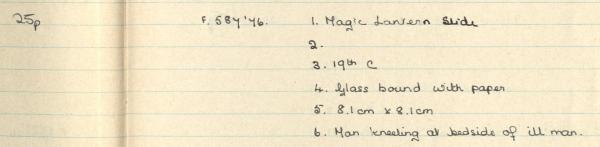 25p F. 587'76. 1. Magic Lantern Slide
2.
3. 19th C
4. Glass bound with paper
5. 8.1cm x 8.1cm
6. Man kneeling at bedside of ill man.